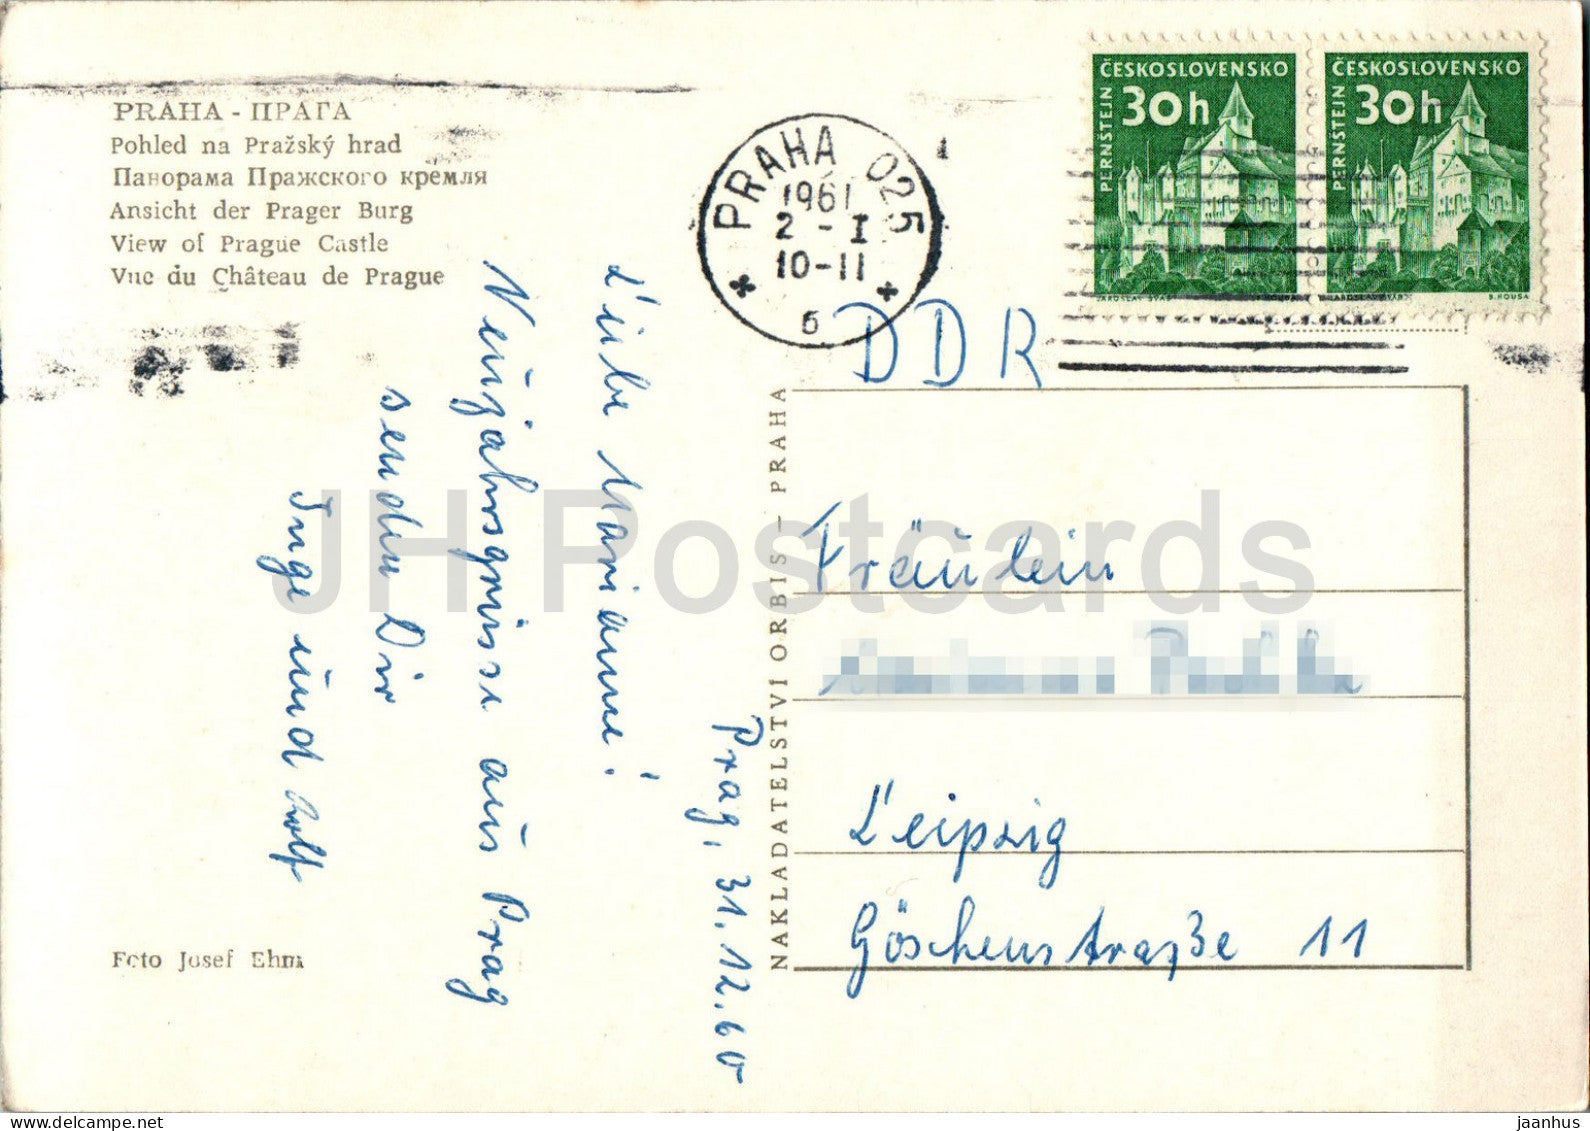 PRAHA - ПРАГА
Pohled na Pražský hrad
Панорама Пражского кремля
Ansicht der Prager Burg
View of Prague Castle
Vue du Château de Prague
PRAHA 025
1961
2 - I
10-11
6
ČESKOSLOVENSKO
30h
PERNŠTEJN
JAROSLAV ŠVÁB
B. HOUSA
ČESKOSLOVENSKO
30h
PERNŠTEJN
JAROSLAV ŠVÁB
B. HOUSA
DDR
Prag, 31.12.60
Liebe Marianne!
Neujahrsgrüsse aus Prag
senden Dir
Inge und Rolf
NAKLADATELSTVÍ ORBIS - PRAHA
Fräulein
Leipzig
Göschenstraße 11
Foto Josef Ehm
JH Postcards
delcampe.net
jaanhus